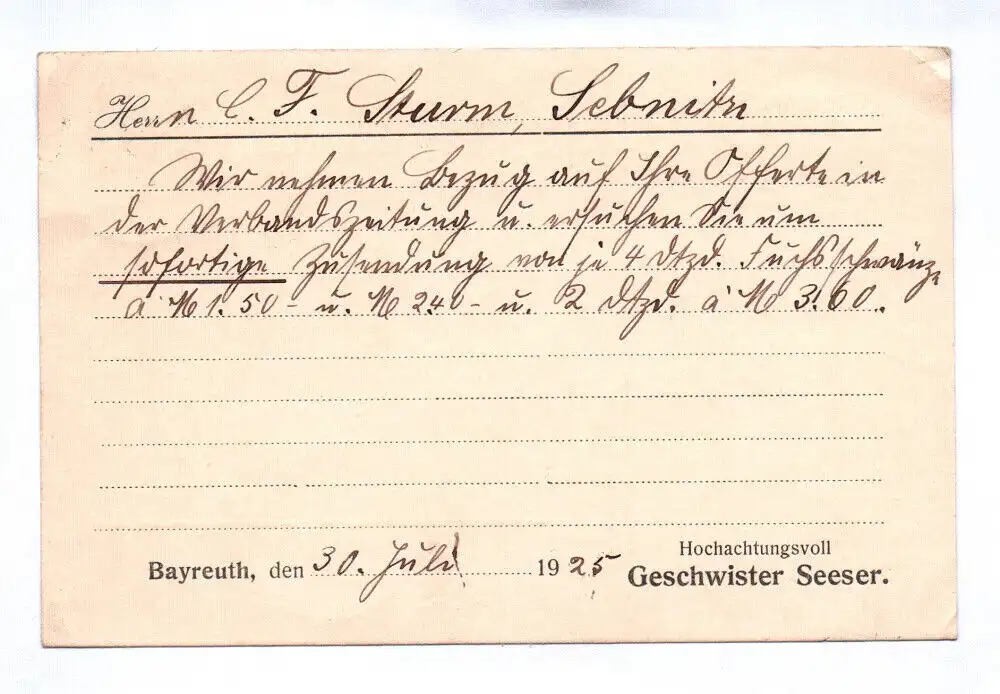 Herrn C. F. Sturm, Sebnitz
Wir nehmen Bezug auf Ihre Offerte in
der Verbandszeitung u. ersuchen Sie um
sofortige Zusendung von je 4 Dtzd. Fuchsschwänze
à M 1.50 - u. M 2.40 - u. 2 Dtzd. à M 3.60.
Bayreuth, den 30. Juli 1925
Hochachtungsvoll
Geschwister Seeser.